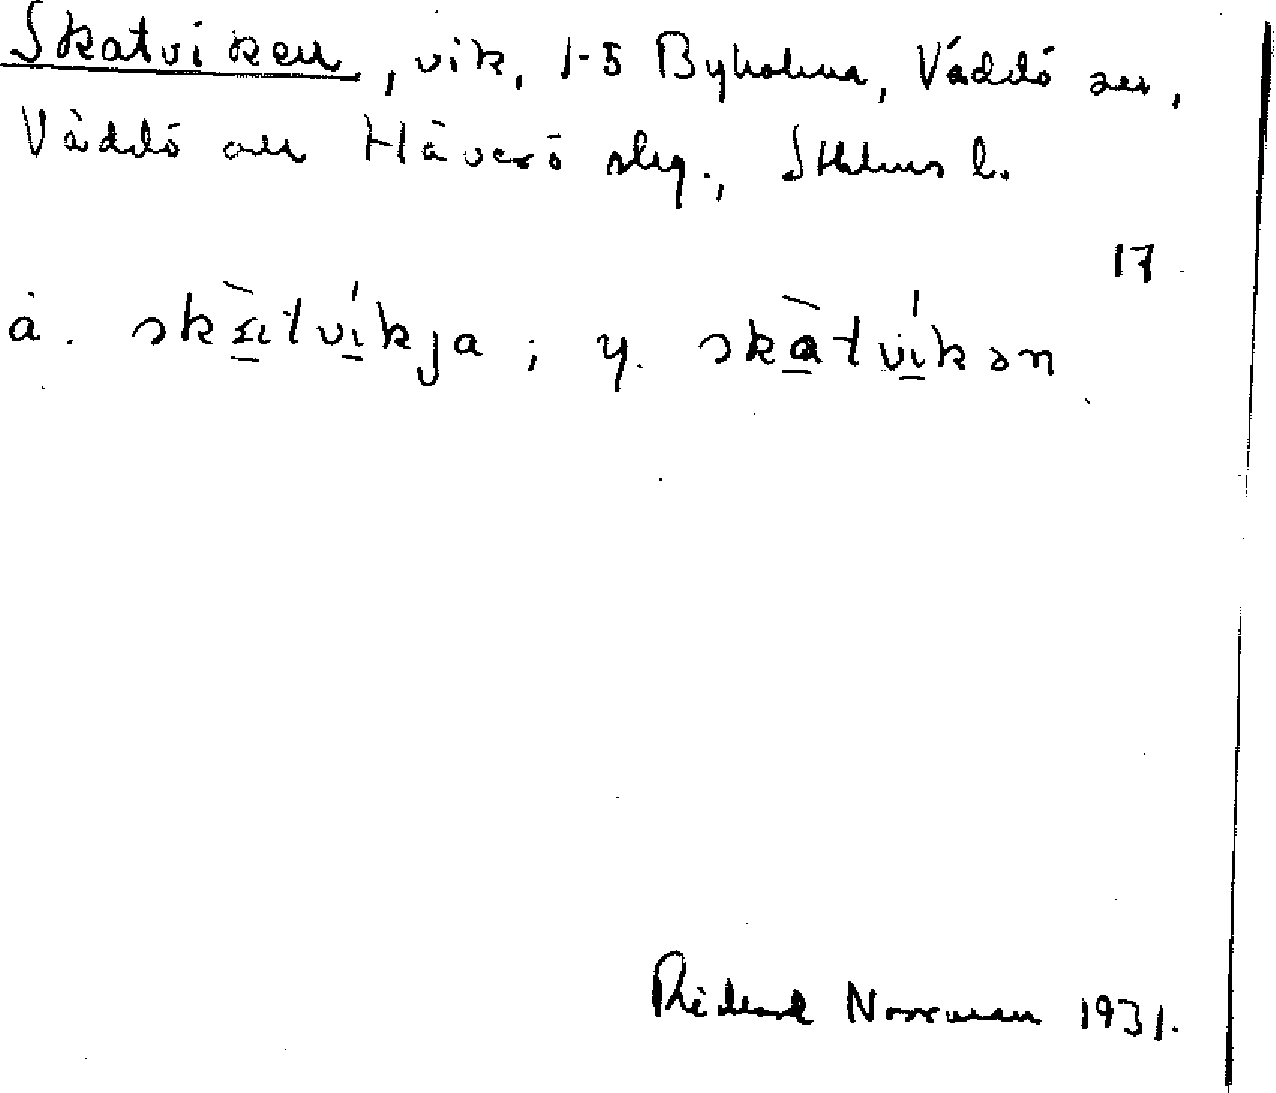 Skatviken, vik, 1-5 Byholma, Väddö sn,
Väddö och Häverö slg., Sthlms l.
17
ä. skatvikja; y. skatvikən
Rickard Norrman 1931.